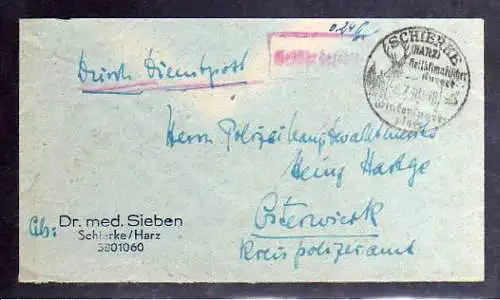 0.24
SCHIERKE
(HARZ)
Heilklimatischer
Kurort
Wintersport-
platz
Durch Dienstpost
Herrn Polizeihauptwachtmeister
Heinz Hartge
Osterwieck
Kreispolizeiamt
Abs:
Dr. med. Sieben
Schierke/Harz
3801060